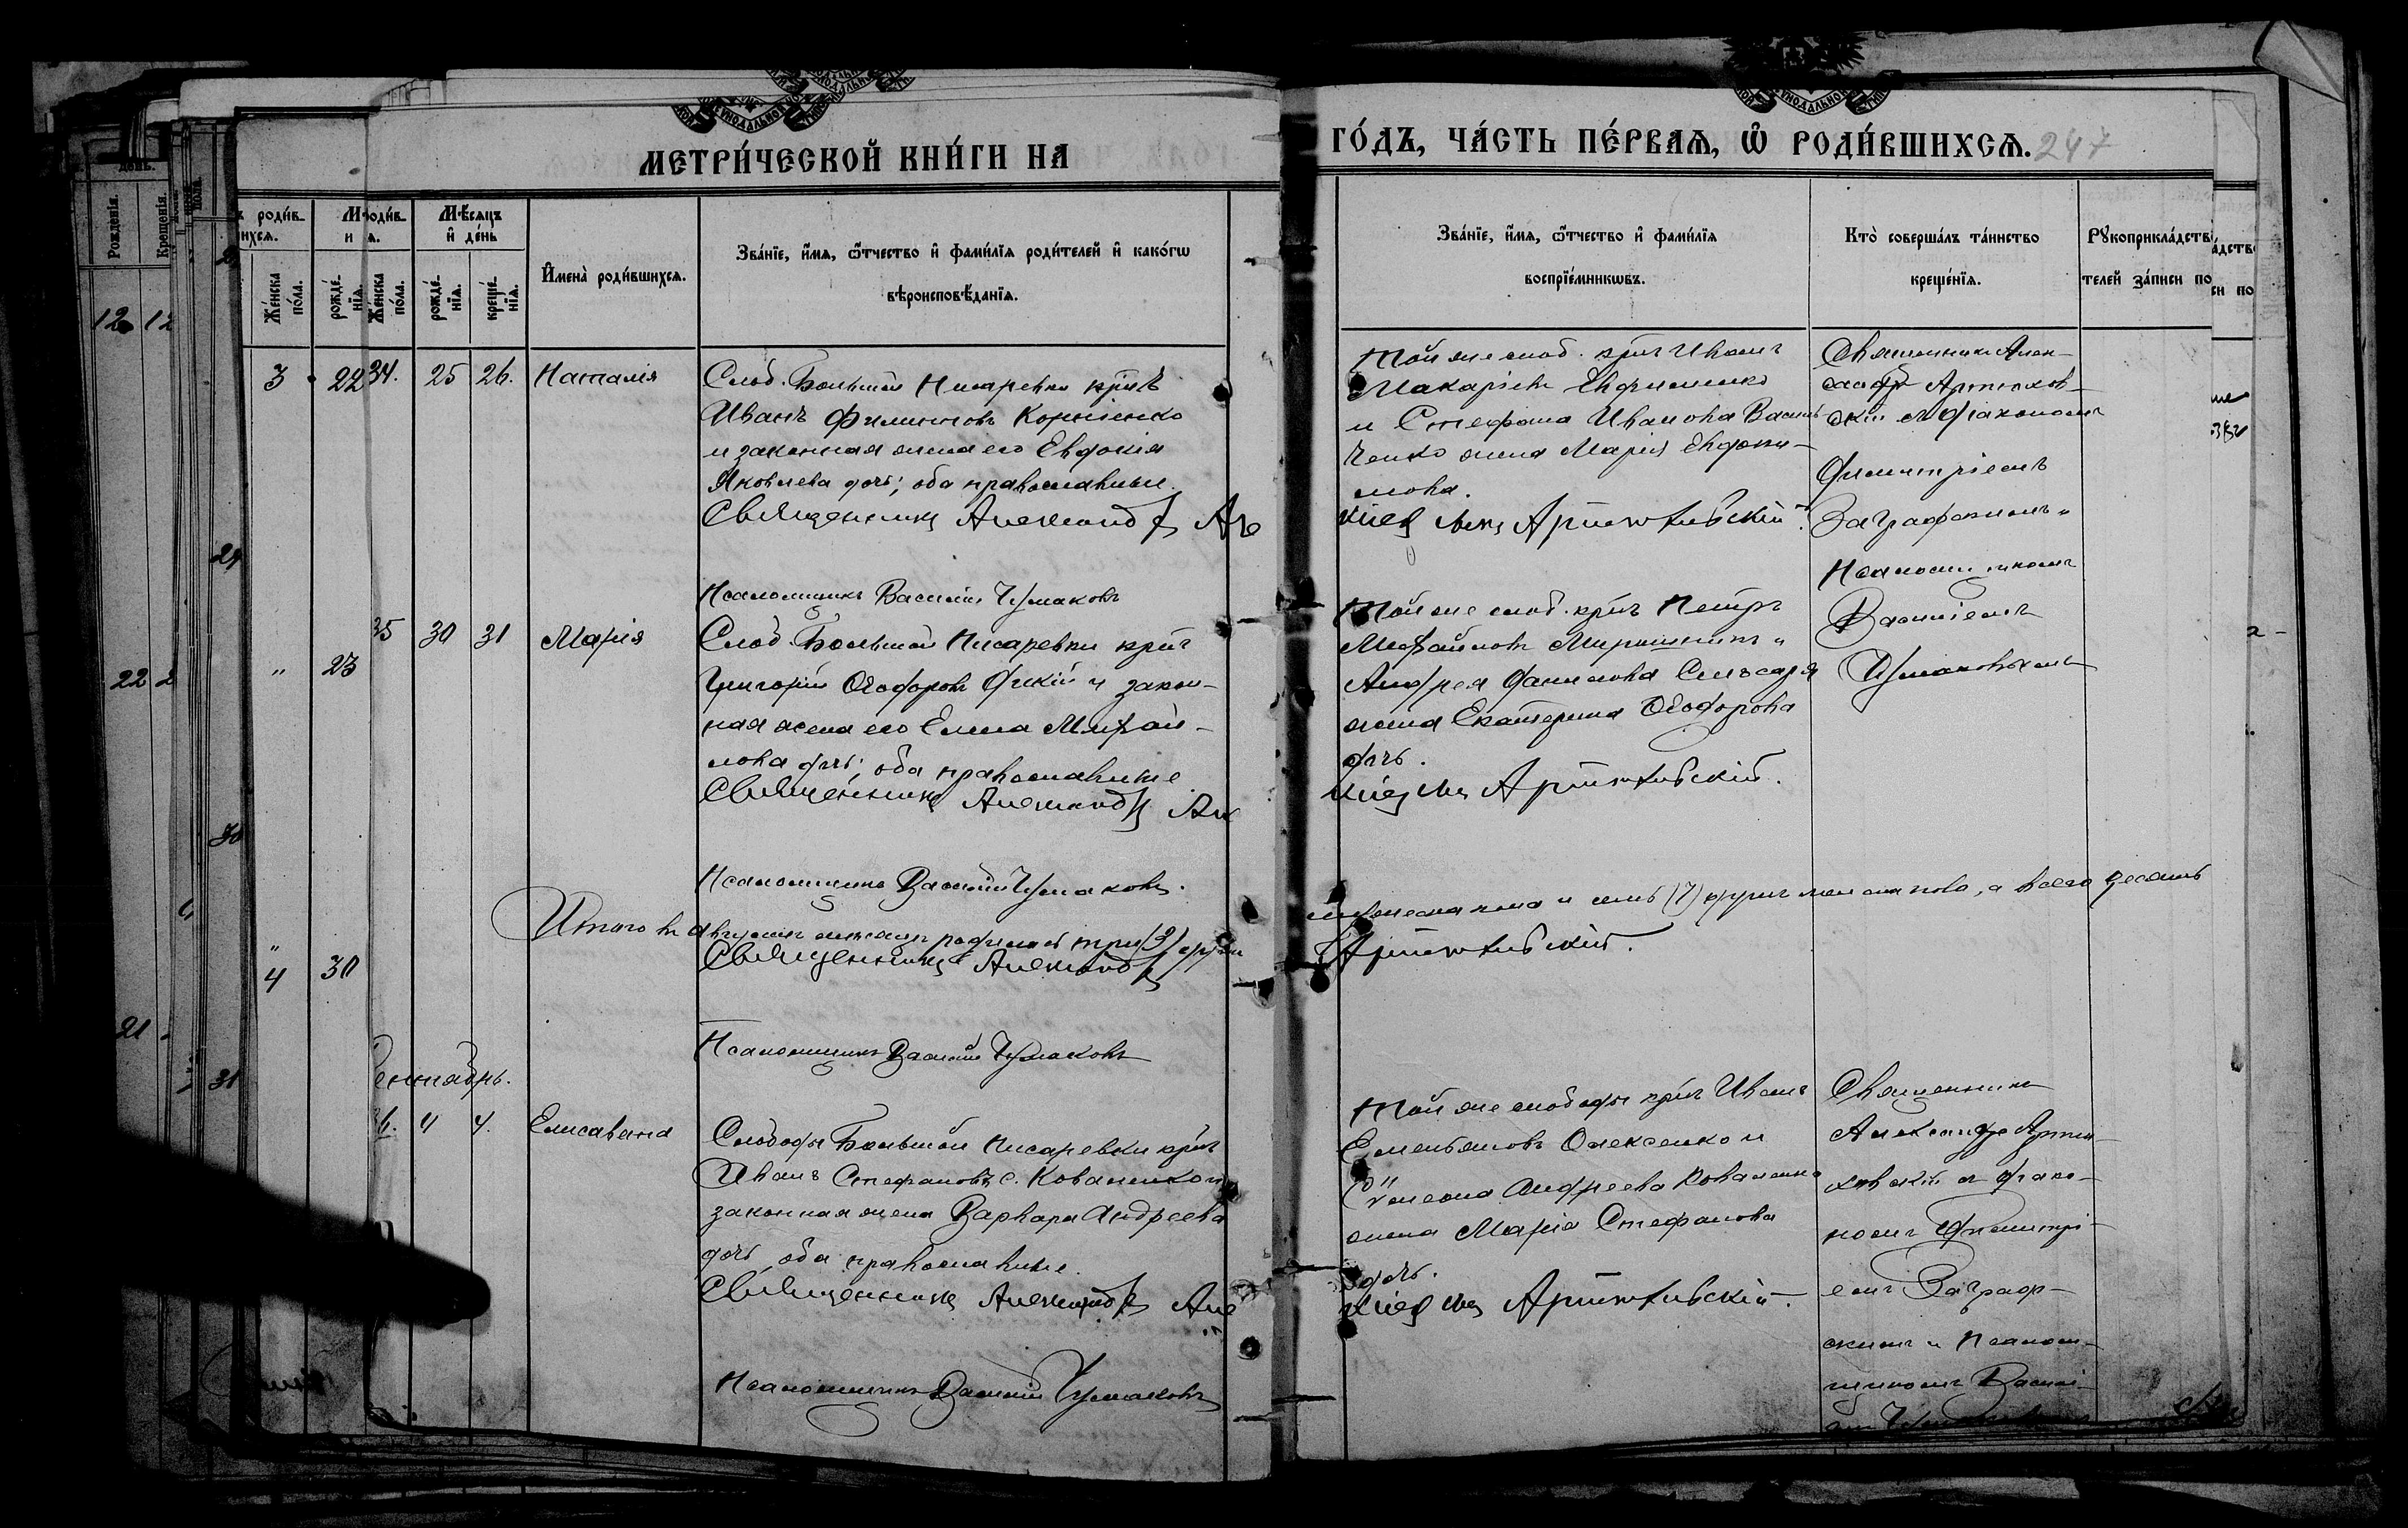 МЕТРИ́ЧЕСКОЙ КНИ́ГИ НА
ГО́ДЪ, ЧА́СТЬ ПЕ́РВАѦ, Ѡ҆ РОДИ́ВШИХСѦ. 247
Мѣ́сѧцъ и҆ де́нь
Же́нска по́ла.
рожде́нїѧ.
креще́нїѧ.
И҆мена̀ роди́вшихсѧ.
Зва́нїе, и҆́мѧ, ѻ҆́тчество и҆ фами́лїѧ роди́телей и҆ како́гѡ
вѣроисповѣ́данїѧ.
Зва́нїе, и҆́мѧ, ѻ҆́тчество и҆ фами́лїѧ
воспрїе́мникѡвъ.
Кто̀ соверша́лъ та́инство
креще́нїѧ.
Рꙋкоприкла́дств
телей за́писи по
34. 25 26. Наталія
Слоб. Большой Писаревки кр-нъ
Иванъ Филиповъ Корніенко
и законная жена его Евдокія
Яковлева дочь; оба православные.
Священникъ Александръ
Псаломщикъ Василій Чумаковъ
Той же слоб. кр-нъ Иванъ
Макаріевъ Ефименко
и Стефана Иванова Василь-
ченко жена Марія Евдоки-
мова.
Артюховскій.
Священникъ Алек-
сандръ Артюхов-
скій съ діакономъ
Димитріемъ
Заграфскимъ и
Псаломщикомъ
Василіемъ
Чумаковымъ
35 30 31 Марія
Слоб. Большой Писаревки кр-нъ
Григорій Ѳеодоровъ и закон-
ная жена его Елена Михай-
лова дочь; оба православные
Священникъ Александръ
Псаломщикъ Василій Чумаковъ.
Той же слоб. кр-нъ Петръ
Михайловъ Мирошникъ и
Андрея Данилова Слѣсаря
жена Екатерина Ѳеодорова
дочь.
Артюховскій.
Итого въ августѣ мѣсяцѣ родилось три (3) души
женска пола и семь (7) душъ пола, а всего десять
Священникъ Александръ Артюховскій.
Псаломщикъ Василій Чумаковъ
Сентябрь.
36. 4 4. Елисавета
Слободы Большой Писаревки кр-нъ
Иванъ Стефановъ с. Коваленко и
законная жена Варвара Андреева
дочь, оба православные.
Священникъ Александръ
Псаломщикъ Василій Чумаковъ
Той же слободы кр-нъ Иванъ
Емельяновъ Олексенко и
Сѵмеона Андреева Коваленко
жена Марія Стефанова
дочь.
Артюховскій.
Священникъ
Александръ Артю-
ховскій съ діако-
номъ Димитрі-
емъ Заграф-
скимъ и Псалом-
щикомъ Василі-
3 22
" 23
" 4 30
Рожденія.
Крещенія.
12 12
22
21